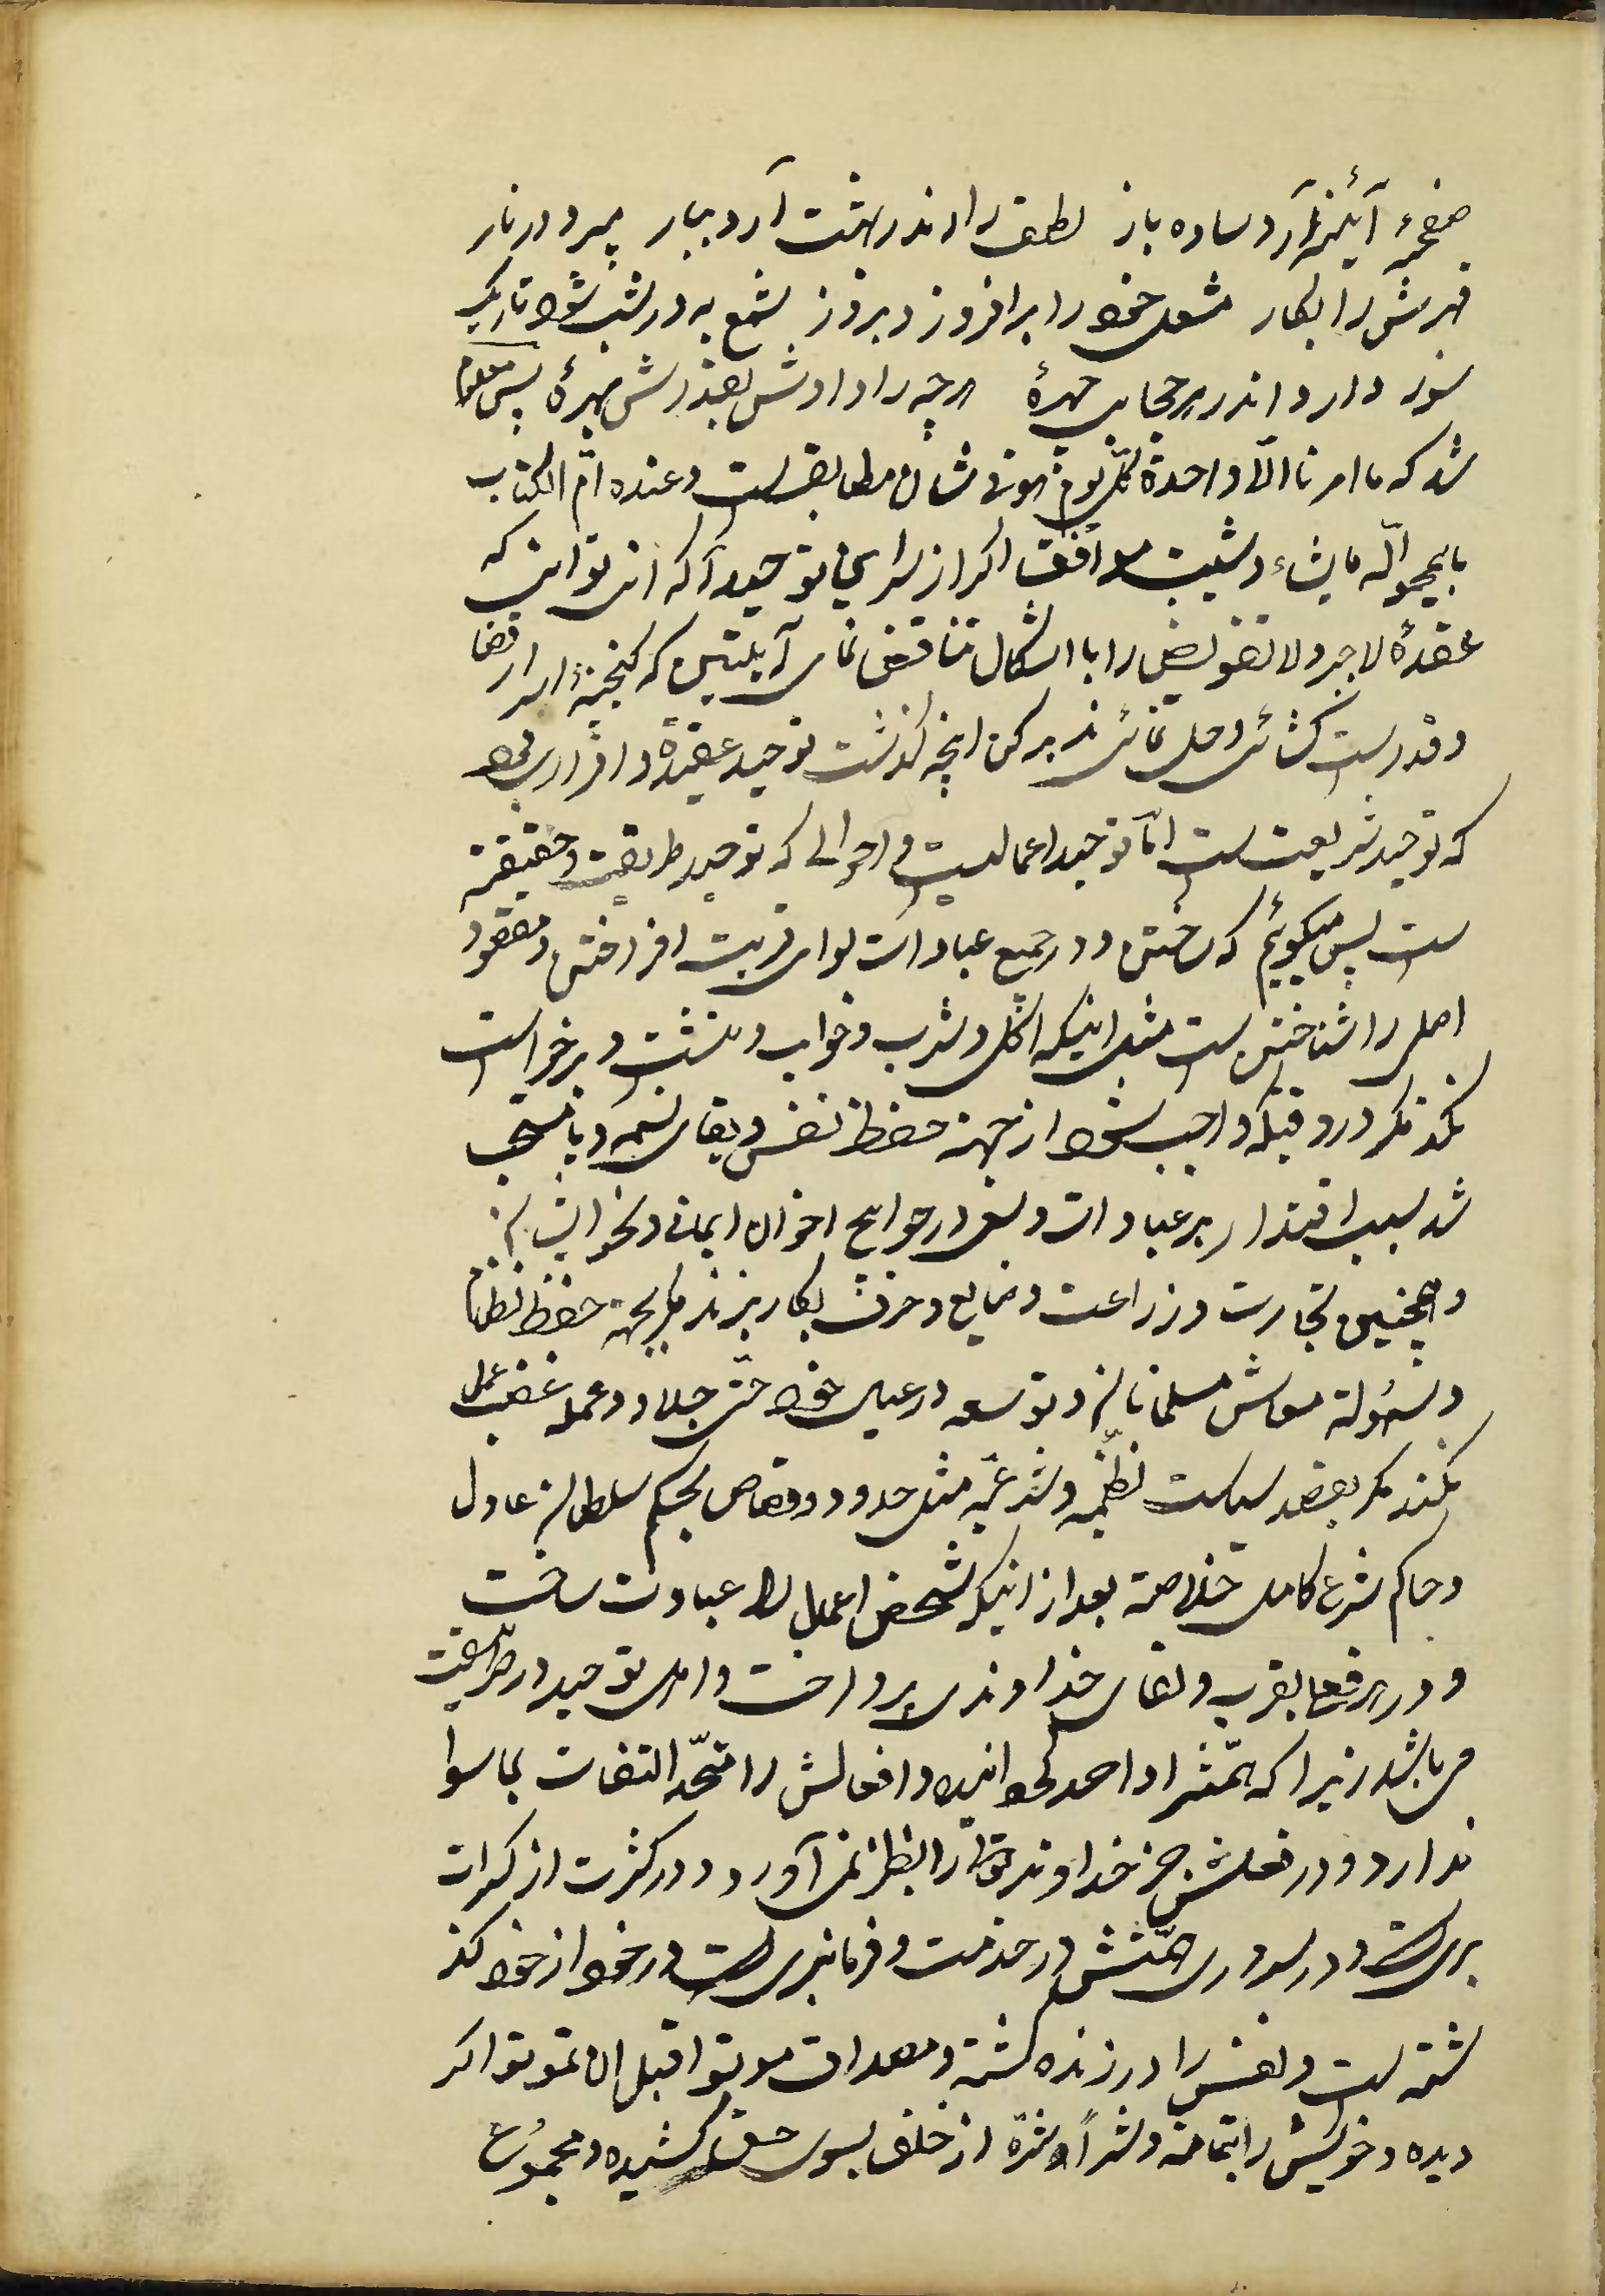 صفحهٔ آئینه آرد ساده باز لطف را اندر بهشت آرد ببار میبرد در نار
قهرش را بکار مشعل خود را برافروز و بروز شمع به در شب شود تاریک
نور دارد اندر هر حجابی چهرهٔ هر چه را دادش بقدرش بهرهٔ پس معلوم
شد که ما امرنا الّا واحدة با کلّ یوم هو فی شان مطابق است و عنده امّ الکتاب
با یمحو اللّه ما یشاء و یثبت موافق اکر از سرای توحید آکه ان توانی که
عقدهٔ لا جبر و لا تفویض را با اشکال تناقض نمای آیتین که کنجینهٔ اسرار قضا
و قدر است کشائی و حل نمائی تدبر کن انچه گذشت توحید عقیدهٔ و اقراری بود
که توحید شریعت است امّا توحید اعمالیست و احوالی که توحید طریقت و حقیقت
ست پس میکوئیم که ساختن و در جمیع عبادات لوای قربت افراختن و مقصود
اصلی را شناختن است مثل اینکه اکل و شرب و خواب و نشست و برخواست
نکند مکر در وقتیکه واجب شود از جهة حفظ نفس و بقای نسمه و یا مستحب
شد بسبب اقتدار بر عبادات و سعی در حوایج اخوان ایمانی و نحو ایشان
و همچنین تجارت و زراعت و صنایع و حرف بکار نبرند مکر بجهة حفظ نظام
و سهولة معاش مسلمانان و توسعه در عیال خود حتّی جلاد و عمله غضب عمل
نکند مکر بقصد سیاست نظمیّه و شرعیّه مثل حدود و قصاص بحکم سلطان عادل
و حاکم شرع کامل خلاصة بعد از اینکه شخص اعمال را عبادت ساخت
و در هر فعل بقرب و لقای خداوندی پرداخت و اهل توحید در طریقت
می باشد زیرا که همّتش را واحد کردانیده و افعالش را متّحد التفات بماسوا
ندارد و در فعلش جز خداوند تعالی را بنظر نمی آورد و در کثرت از کثرات
بری است و در سروری همّتش در خدمت و فرمانبری است در خود از خود کذ
شته است و نفس را در زنده کشته و مصداق موتوا قبل ان تموتوا اکر
دیده و خویش را بتمامه و شراشره از خلق بسوی حق کشیده و مجموع